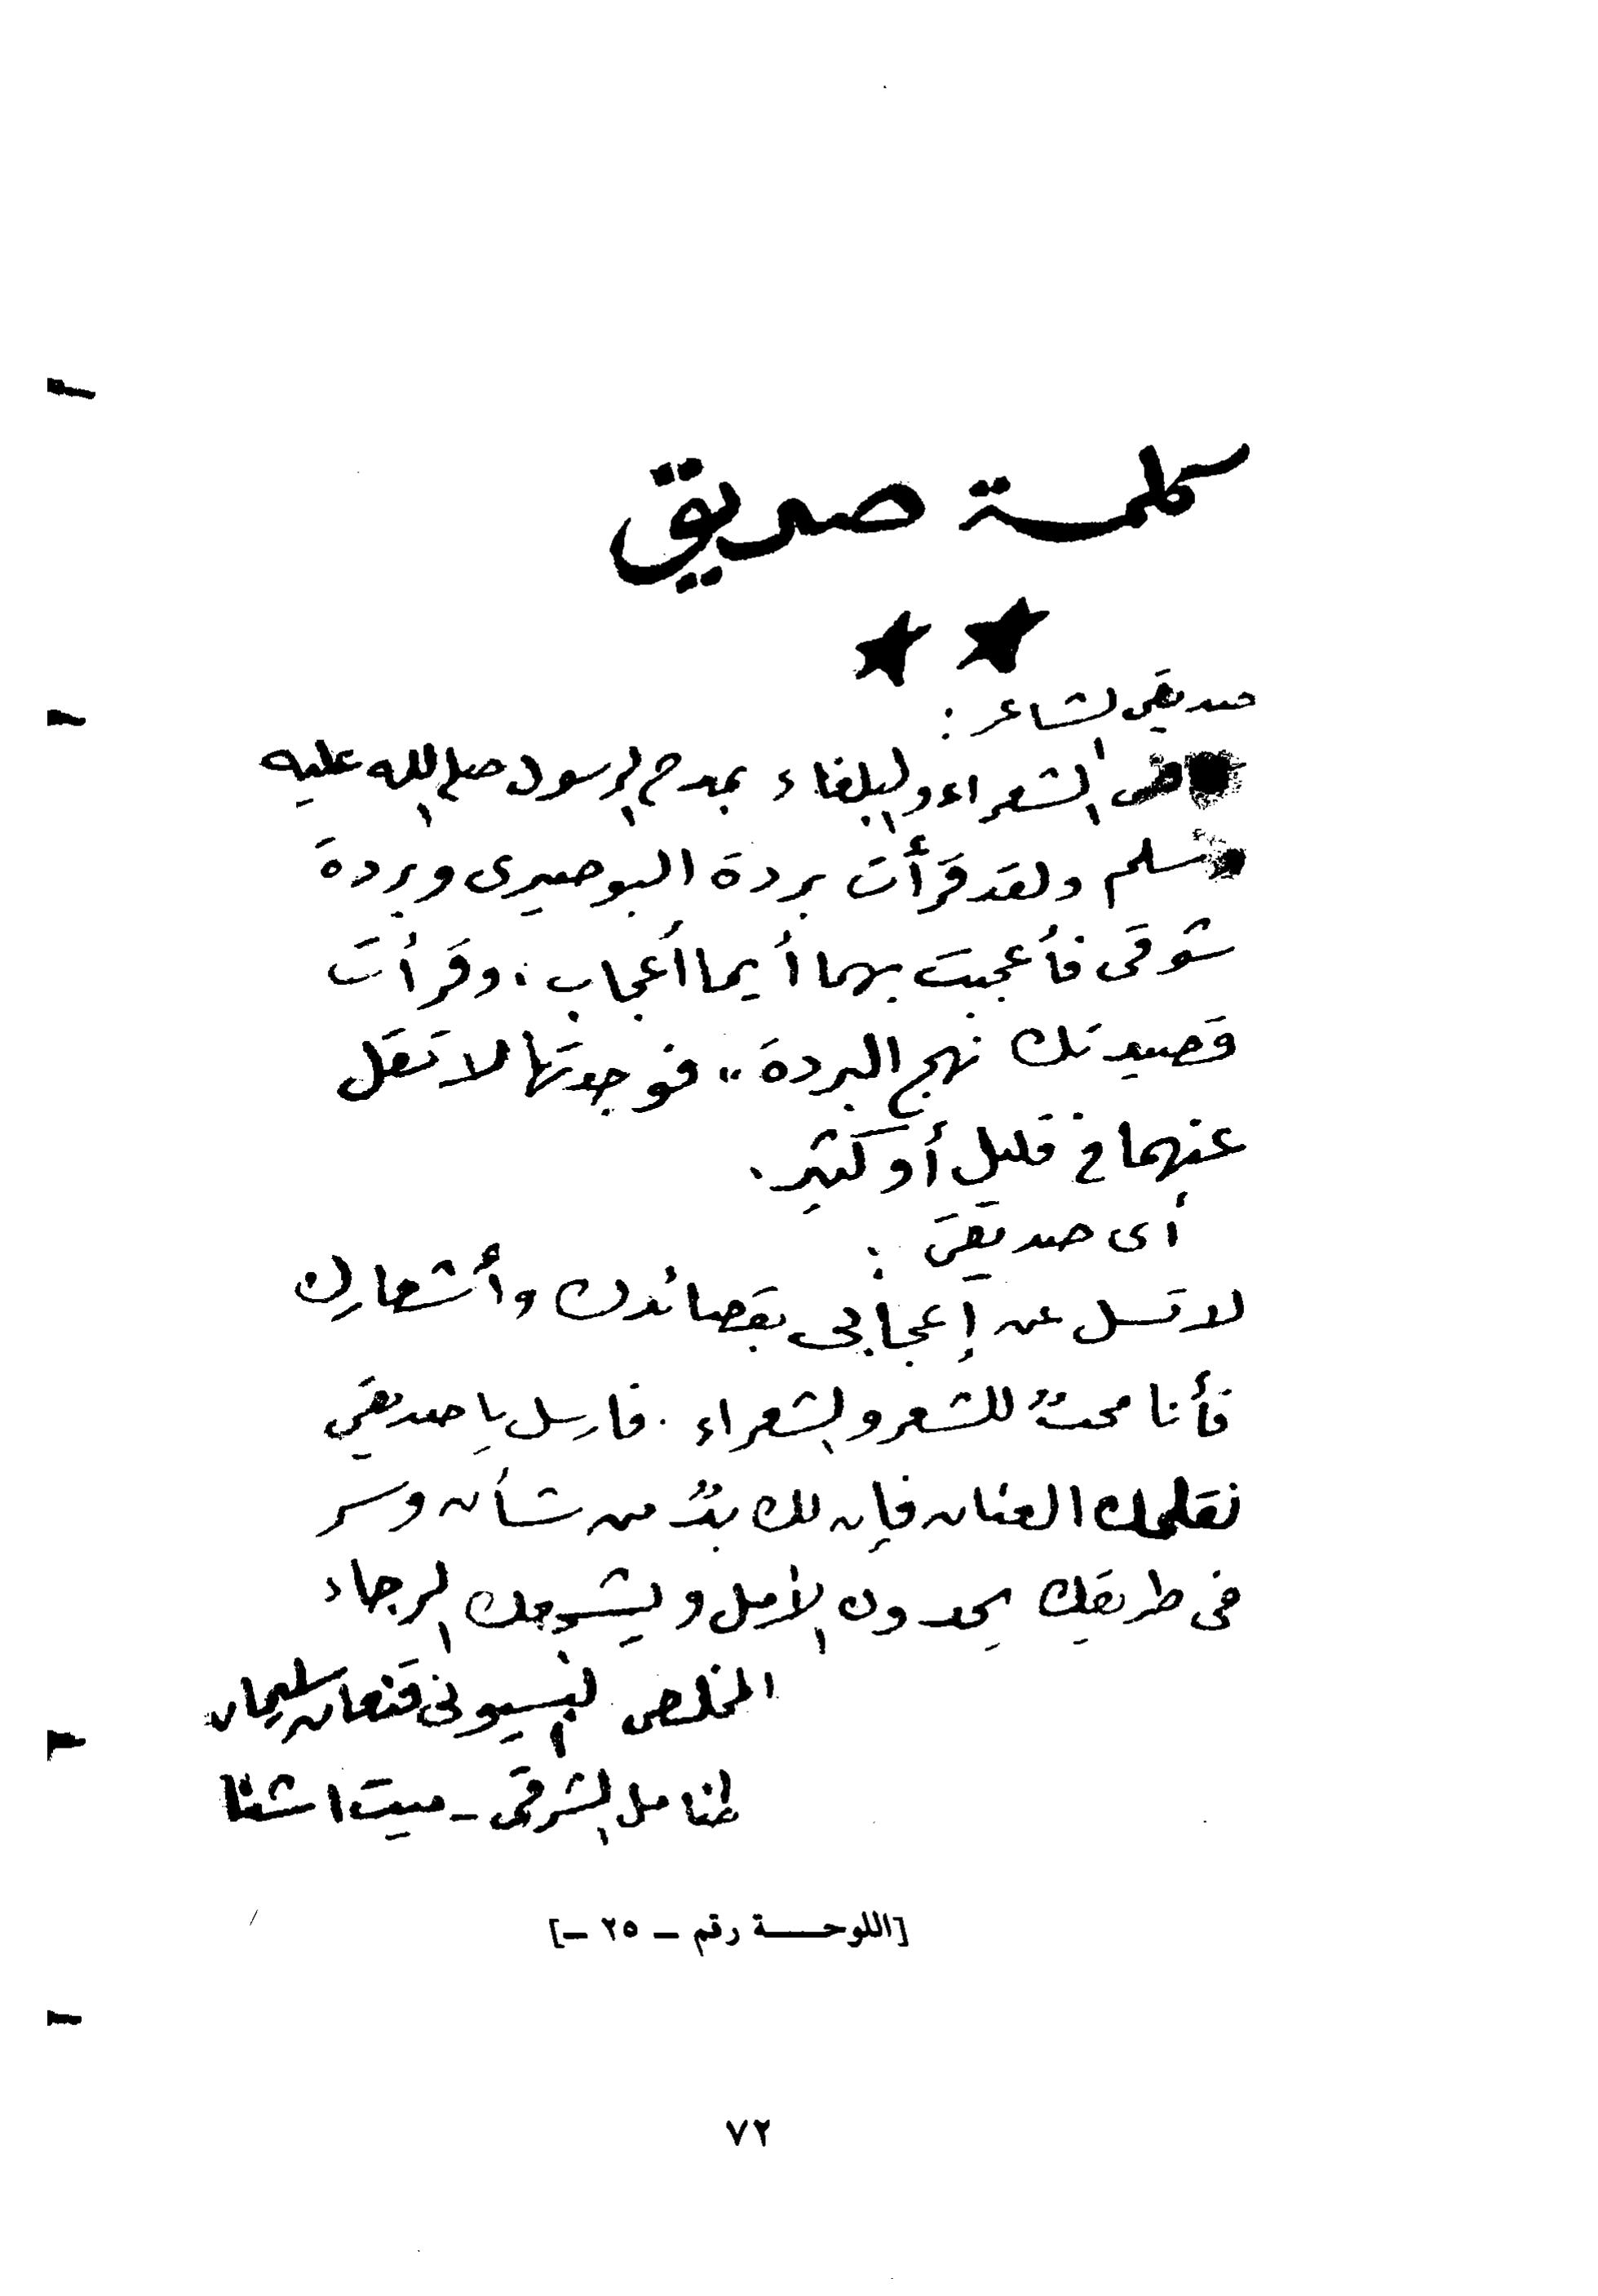 كلمة صديق
صديقى الشاعر :
الشعراء والبلغاء بمدح الرسول صلى الله عليه
وسلم ولقد قرأت بردة البوصيرى وبردة
شوقى فأعجبت بهما أيما أعجاب ، وقرأت
قصيدتك نهج البردة ،، فوجدتها لا تقل
عنهما فى قليل أو كثير .
أى صديقى :
لا تسل عن إعجابى بقصائدك وأشعارك
فأنا محبٌ للشعر والشعراء . فارسل يا صديقى
لقلمك العنان فإن لك بدٌ من شأن وسر
فى طريقك يحدوك الأمل ويشوقك الرجاء
المخلص البسيونى قنعان سليمان
المنامل الشرقى - ميت اشنا
[اللوحة رقم - ٢٥ -]
٧٢